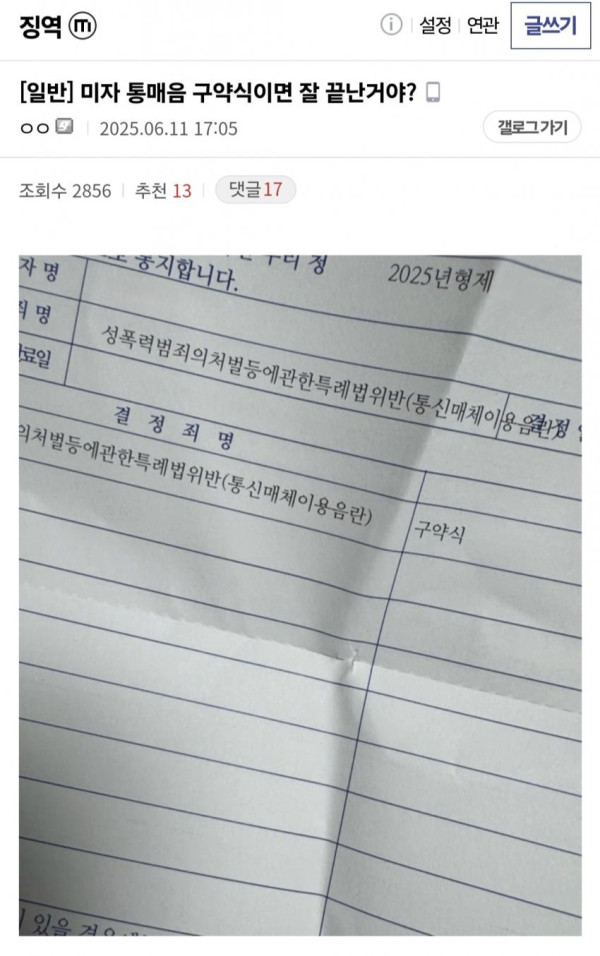 징역 ⓜ
설정 연관 글쓰기
[일반] 미자 통매음 구약식이면 잘 끝난거야?
ㅇㅇ 2025.06.11 17:05
갤로그 가기
조회수 2856 추천 13 댓글 17
통지합니다.
2025년형제
자 명
죄 명
성폭력범죄의처벌등에관한특례법위반(통신매체이용음란)
료일
결정
결 정 죄 명
의처벌등에관한특례법위반(통신매체이용음란)
구약식
있을 경우에